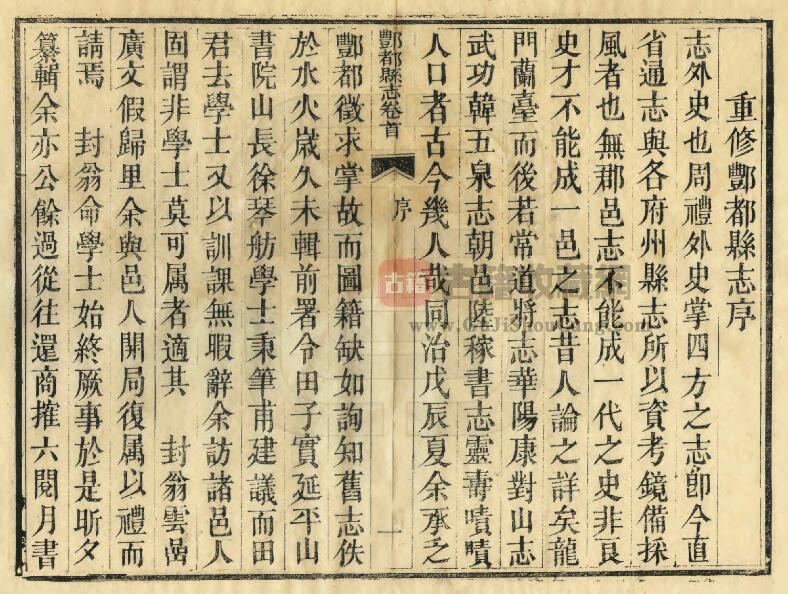 重修酆都縣志序
志外史也周禮外史掌四方之志卽今直
省通志與各府州縣志所以資考鏡備採
風者也無郡邑志不能成一代之史非良
史才不能成一邑之志昔人論之詳矣龍
門蘭臺而後若常道將志華陽康對山志
武功韓五泉志朝邑陸稼書志靈壽嘖嘖
人口者古今幾人哉同治戊辰夏余承乏
酆都縣志卷首 序 一
酆都徵求掌故而圖籍缺如詢知舊志佚
於水火歲久未輯前署令田子實延平山
書院山長徐琴舫學士秉筆甫建議而田
君去學士又以訓課無暇辭余訪諸邑人
固謂非學士莫可属者適其 封翁雲嵒
廣文假歸里余與邑人開局復属以禮而
請焉 封翁命學士始終厥事於是昕夕
纂輯余亦公餘過從往還商搉六閱月書
古籍
古籍收藏網
www.GuJiShouCang.com